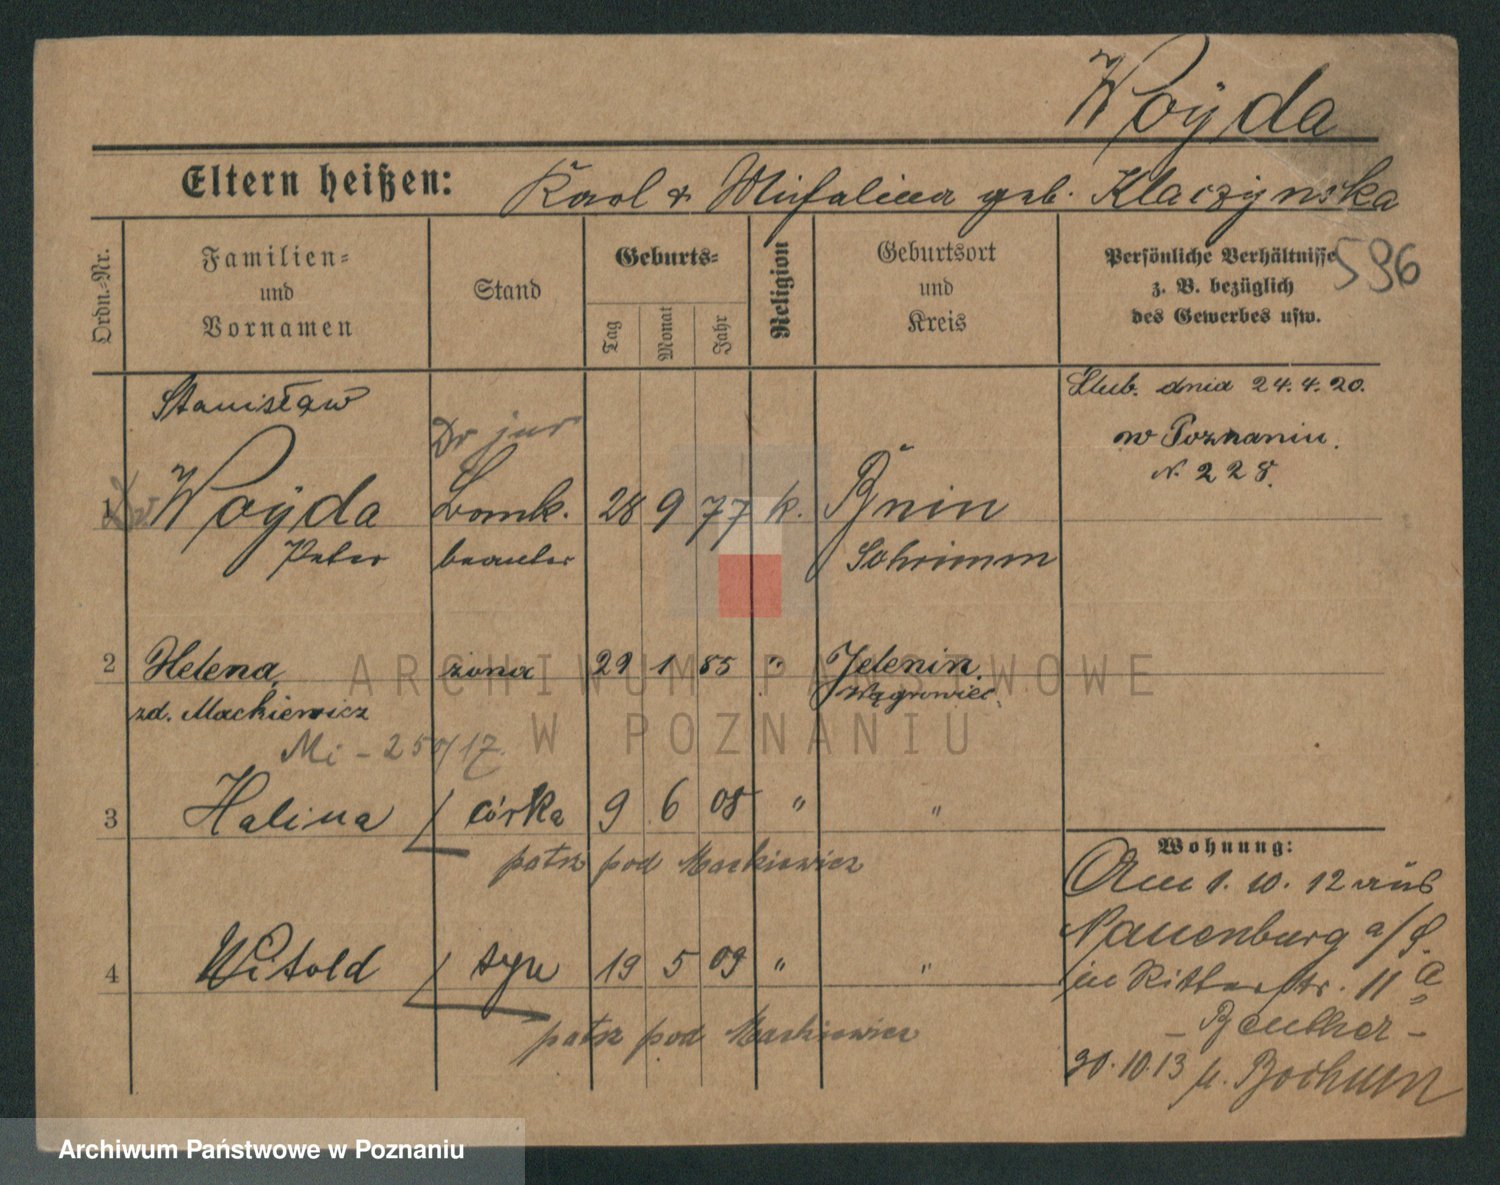 Woÿda
Eltern heißen: Karl & Michalina geb. Klaczynska
Ordn.-Nr.
Familien-
und
Vornamen
Stand
Geburts-
Tag
Monat
Jahr
Religion
Geburtsort
und
Kreis
Persönliche Verhältnisse
z. B. bezüglich
des Gewerbes usw.
596
Stanisław
Dr jur
Ślub. dnia 24.4.20.
w Poznaniu.
N. 228.
1 Woÿda Bank. 28 9 77 k. Bnin
Peter beamter Schrimm
2 Helena żona 29 1 85 " Jelenin.
zd. Mackiewicz Wągrowiec.
Mi - 250/17.
3 Halina / córka 9 6 08 " "
patrz pod Mackiewicz
4 Witold / syn 19 5 09 " "
patrz pod Mackiewicz
Wohnung:
Am 1. 10. 12 aus
Nauenburg a/S.
in Ritterstr. 11a
- Beuther -
30.10.13 n. Bochum
ARCHIWUM PAŃSTWOWE
W POZNANIU
Archiwum Państwowe w Poznaniu